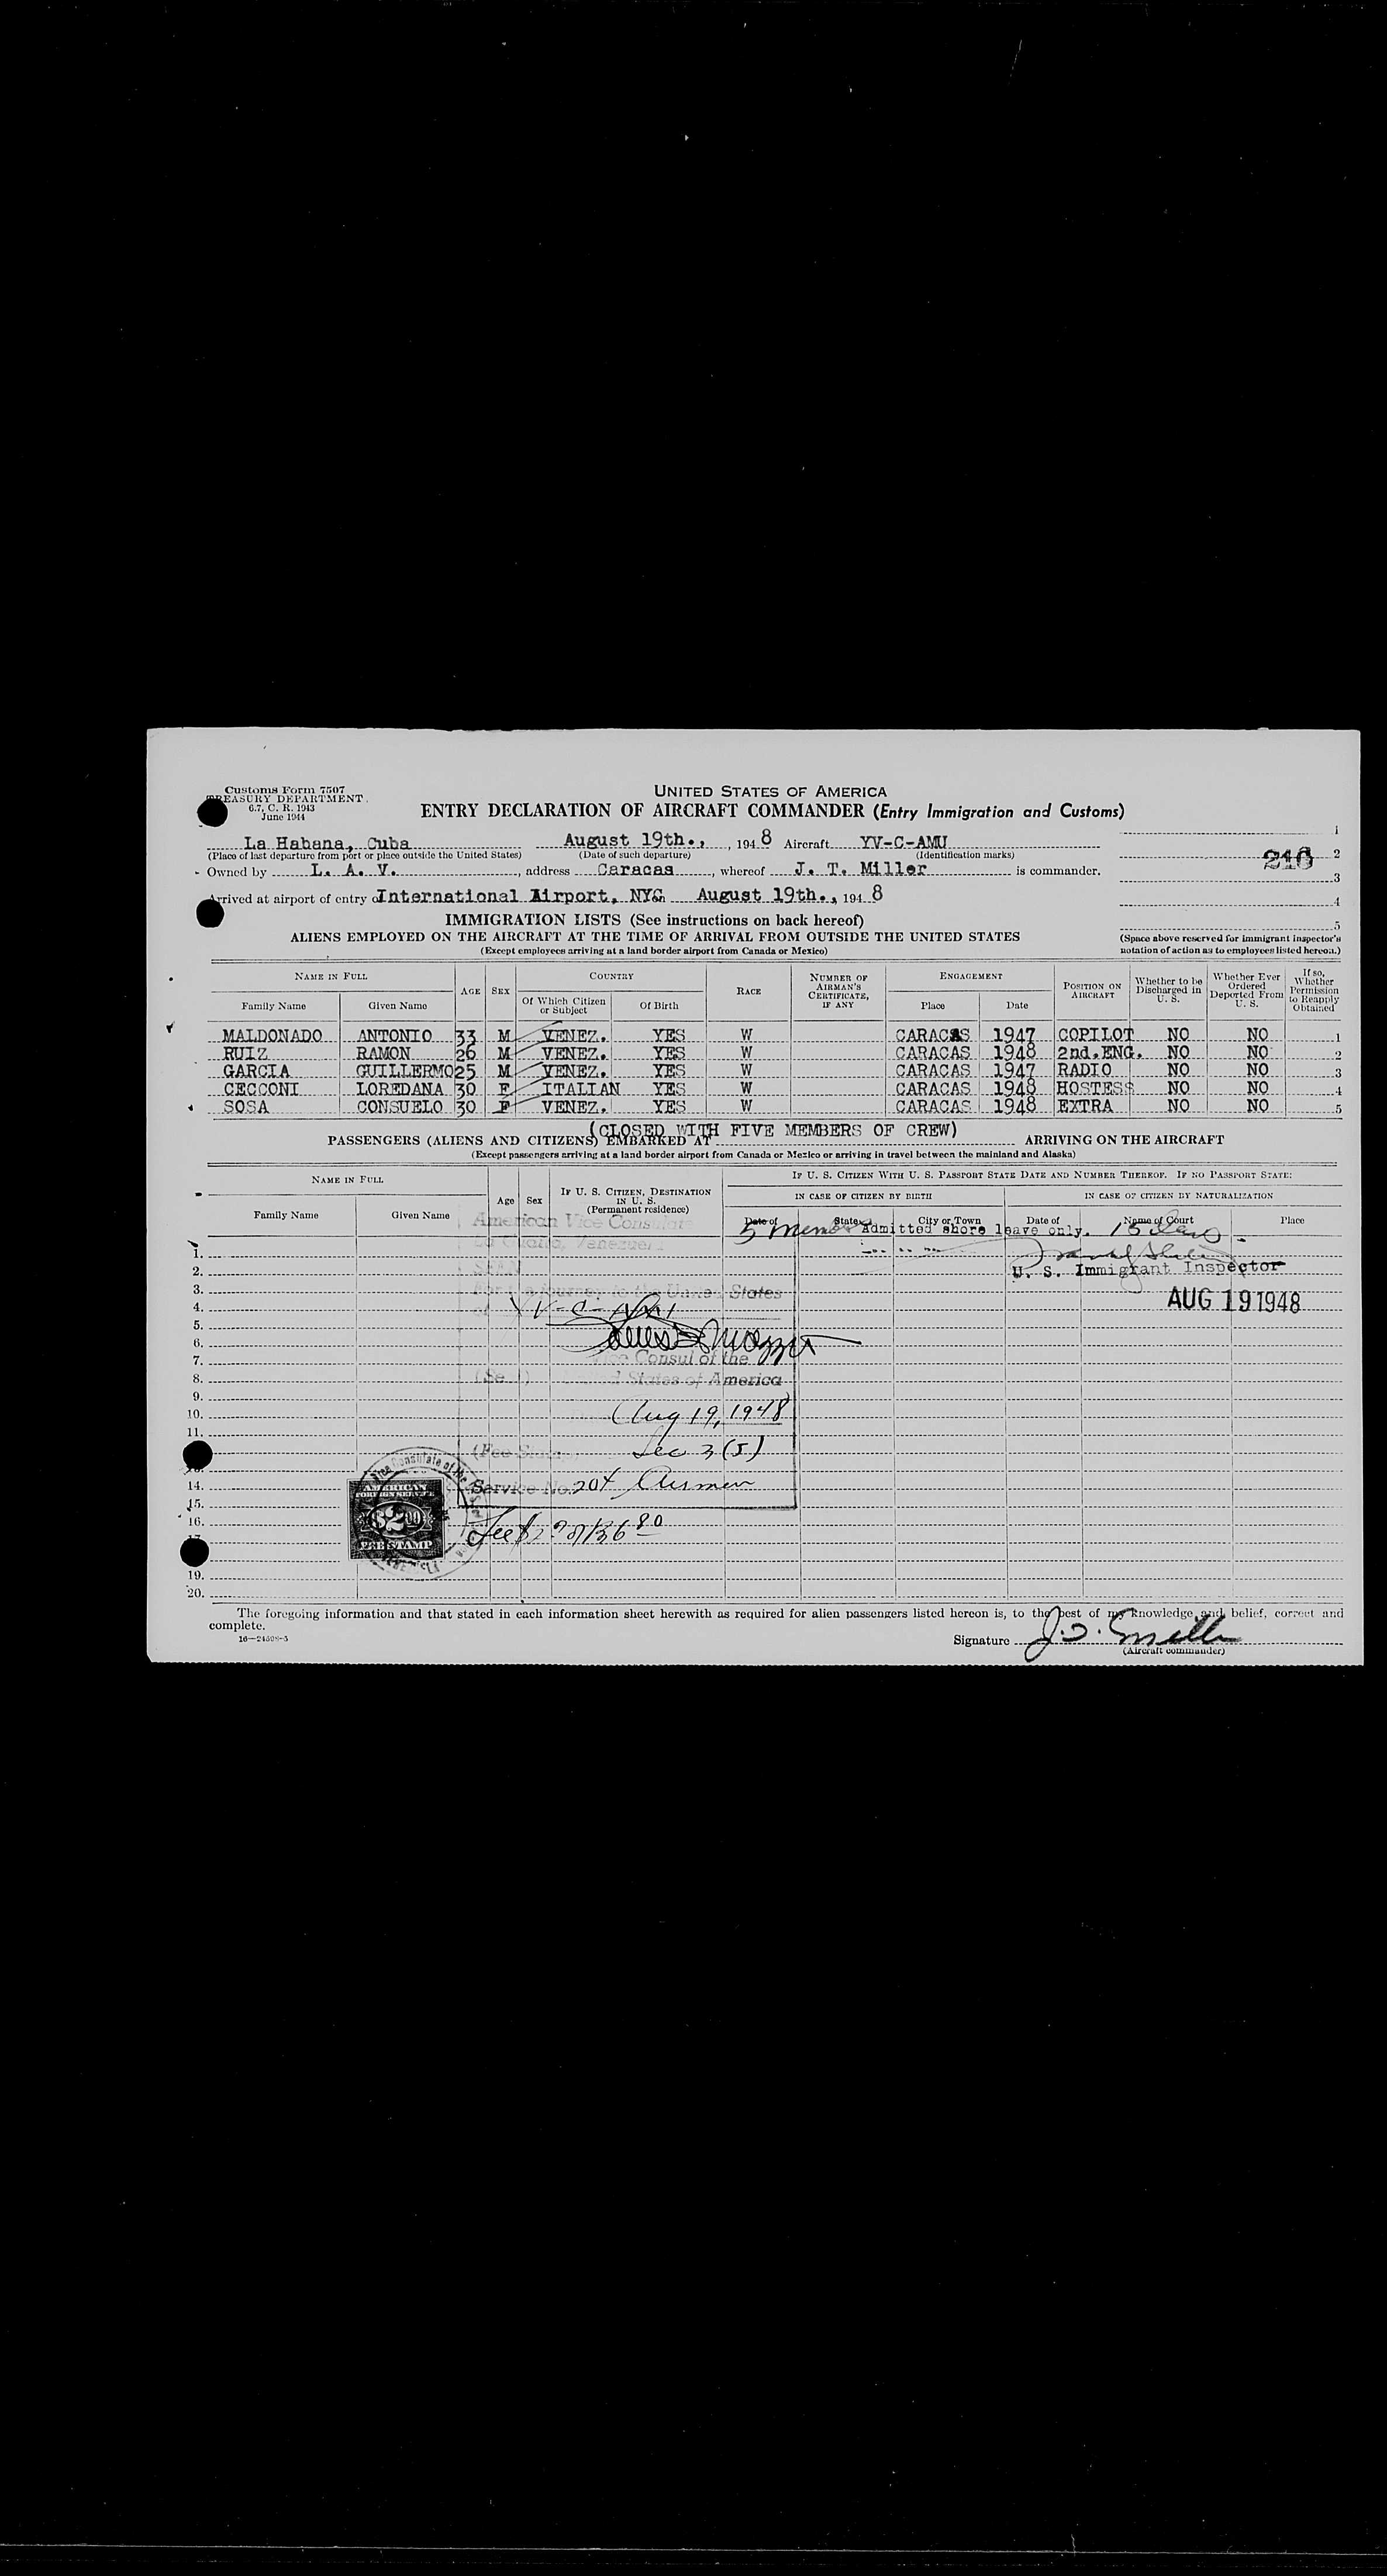 Customs Form 7507
TREASURY DEPARTMENT
6.7, C. R. 1943
June 1944
UNITED STATES OF AMERICA
ENTRY DECLARATION OF AIRCRAFT COMMANDER (Entry Immigration and Customs)
La Habana, Cuba August 19th., , 1948 Aircraft YV-C-AMU 1
(Place of last departure from port or place outside the United States) (Date of such departure) (Identification marks)
216 2
Owned by L. A. V. , address Caracas , whereof J. T. Miller is commander. 3
Arrived at airport of entry International Airport, NYC August 19th., 1948 4
IMMIGRATION LISTS (See instructions on back hereof) 5
ALIENS EMPLOYED ON THE AIRCRAFT AT THE TIME OF ARRIVAL FROM OUTSIDE THE UNITED STATES
(Except employees arriving at a land border airport from Canada or Mexico)
(Space above reserved for immigrant inspector's notation of action as to employees listed hereon.)
NAME IN FULL AGE SEX COUNTRY RACE NUMBER OF AIRMAN'S CERTIFICATE, IF ANY ENGAGEMENT POSITION ON AIRCRAFT Whether to be Discharged in U. S. Whether Ever Ordered Deported From U. S. If so, Whether Permission to Reapply Obtained
Family Name Given Name Of Which Citizen or Subject Of Birth Place Date
MALDONADO ANTONIO 33 M VENEZ. YES W CARACAS 1947 COPILOT NO NO 1
RUIZ RAMON 26 M VENEZ. YES W CARACAS 1948 2nd.ENG. NO NO 2
GARCIA GUILLERMO 25 M VENEZ. YES W CARACAS 1947 RADIO NO NO 3
CECCONI LOREDANA 30 F ITALIAN YES W CARACAS 1948 HOSTESS NO NO 4
SOSA CONSUELO 30 F VENEZ. YES W CARACAS 1948 EXTRA NO NO 5
(CLOSED WITH FIVE MEMBERS OF CREW)
PASSENGERS (ALIENS AND CITIZENS) EMBARKED AT ARRIVING ON THE AIRCRAFT
(Except passengers arriving at a land border airport from Canada or Mexico or arriving in travel between the mainland and Alaska)
NAME IN FULL Age Sex IF U. S. CITIZEN, DESTINATION IN U. S. (Permanent residence) IF U. S. CITIZEN WITH U. S. PASSPORT STATE DATE AND NUMBER THEREOF. IF NO PASSPORT STATE:
IN CASE OF CITIZEN BY BIRTH IN CASE OF CITIZEN BY NATURALIZATION
Family Name Given Name Date of State City or Town Date of Name of Court Place
American Vice Consulate
5 Admitted shore leave only. 15 Days
Venezuela
1.
2. SEEN U. S. Immigrant Inspector
3. For a journey to the United States
AUG 19 1948
4. YV-C-
5.
6.
7. Vice Consul of the
8. (Seal) United States of America
9.
10. Aug 19, 1948
11.
(Fee Stamp) Sec 3 (5)
14. Service No. 204 Airmen
15.
AMERICAN FOREIGN SERVICE $2.00 FEE STAMP
16.
17.
19.
20.
The foregoing information and that stated in each information sheet herewith as required for alien passengers listed hereon is, to the best of my knowledge and belief, correct and
complete.
16—24508-3
Signature J. T. Miller
(Aircraft commander)